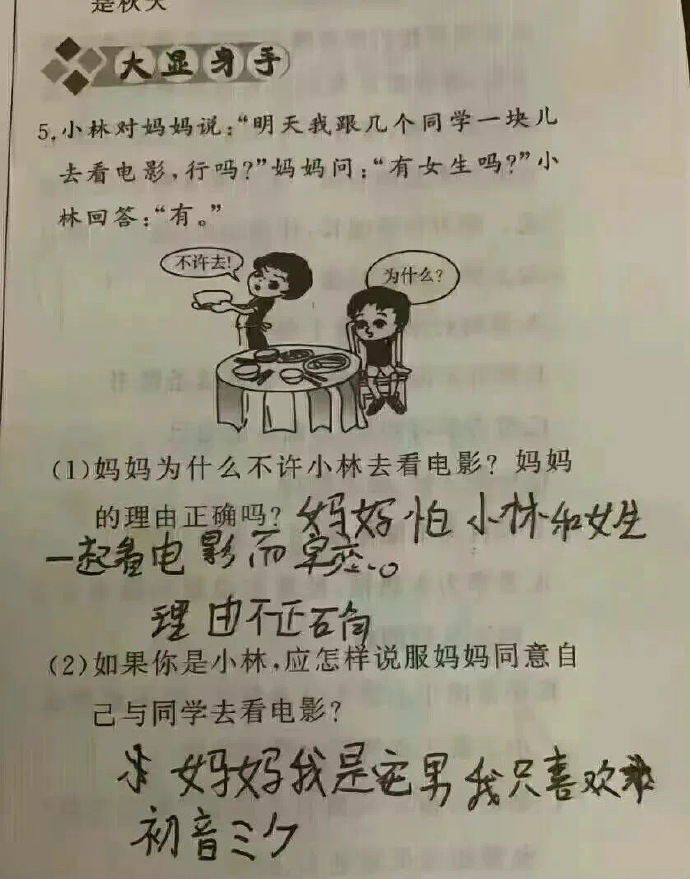 是秋天
大显身手
5.小林对妈妈说：“明天我跟几个同学一块儿
去看电影，行吗？”妈妈问：“有女生吗？”小
林回答：“有。”
不许去！
为什么？
(1)妈妈为什么不许小林去看电影？妈妈
的理由正确吗？妈妈怕小林和女生
一起看电影而早恋。
理由不正确
(2)如果你是小林，应怎样说服妈妈同意自
己与同学去看电影？
妈妈我是宅男我只喜欢
初音ミク